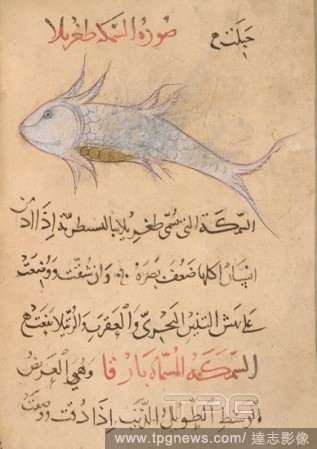 صورة السمكة طغريلا
السمكة التي تسمى طغريلا بالبسطرية اذا ادمن
انسان اكلها ضعف بصره وان شقت ووضعت
على نهش التنين البحري والعقرب والرتيلا ينفع
السمكة المسماة بارقا وهي العريض
الوسط الطويل الذنب اذا دقت ووضعت
TPG
www.tpgnews.com / 達志影像